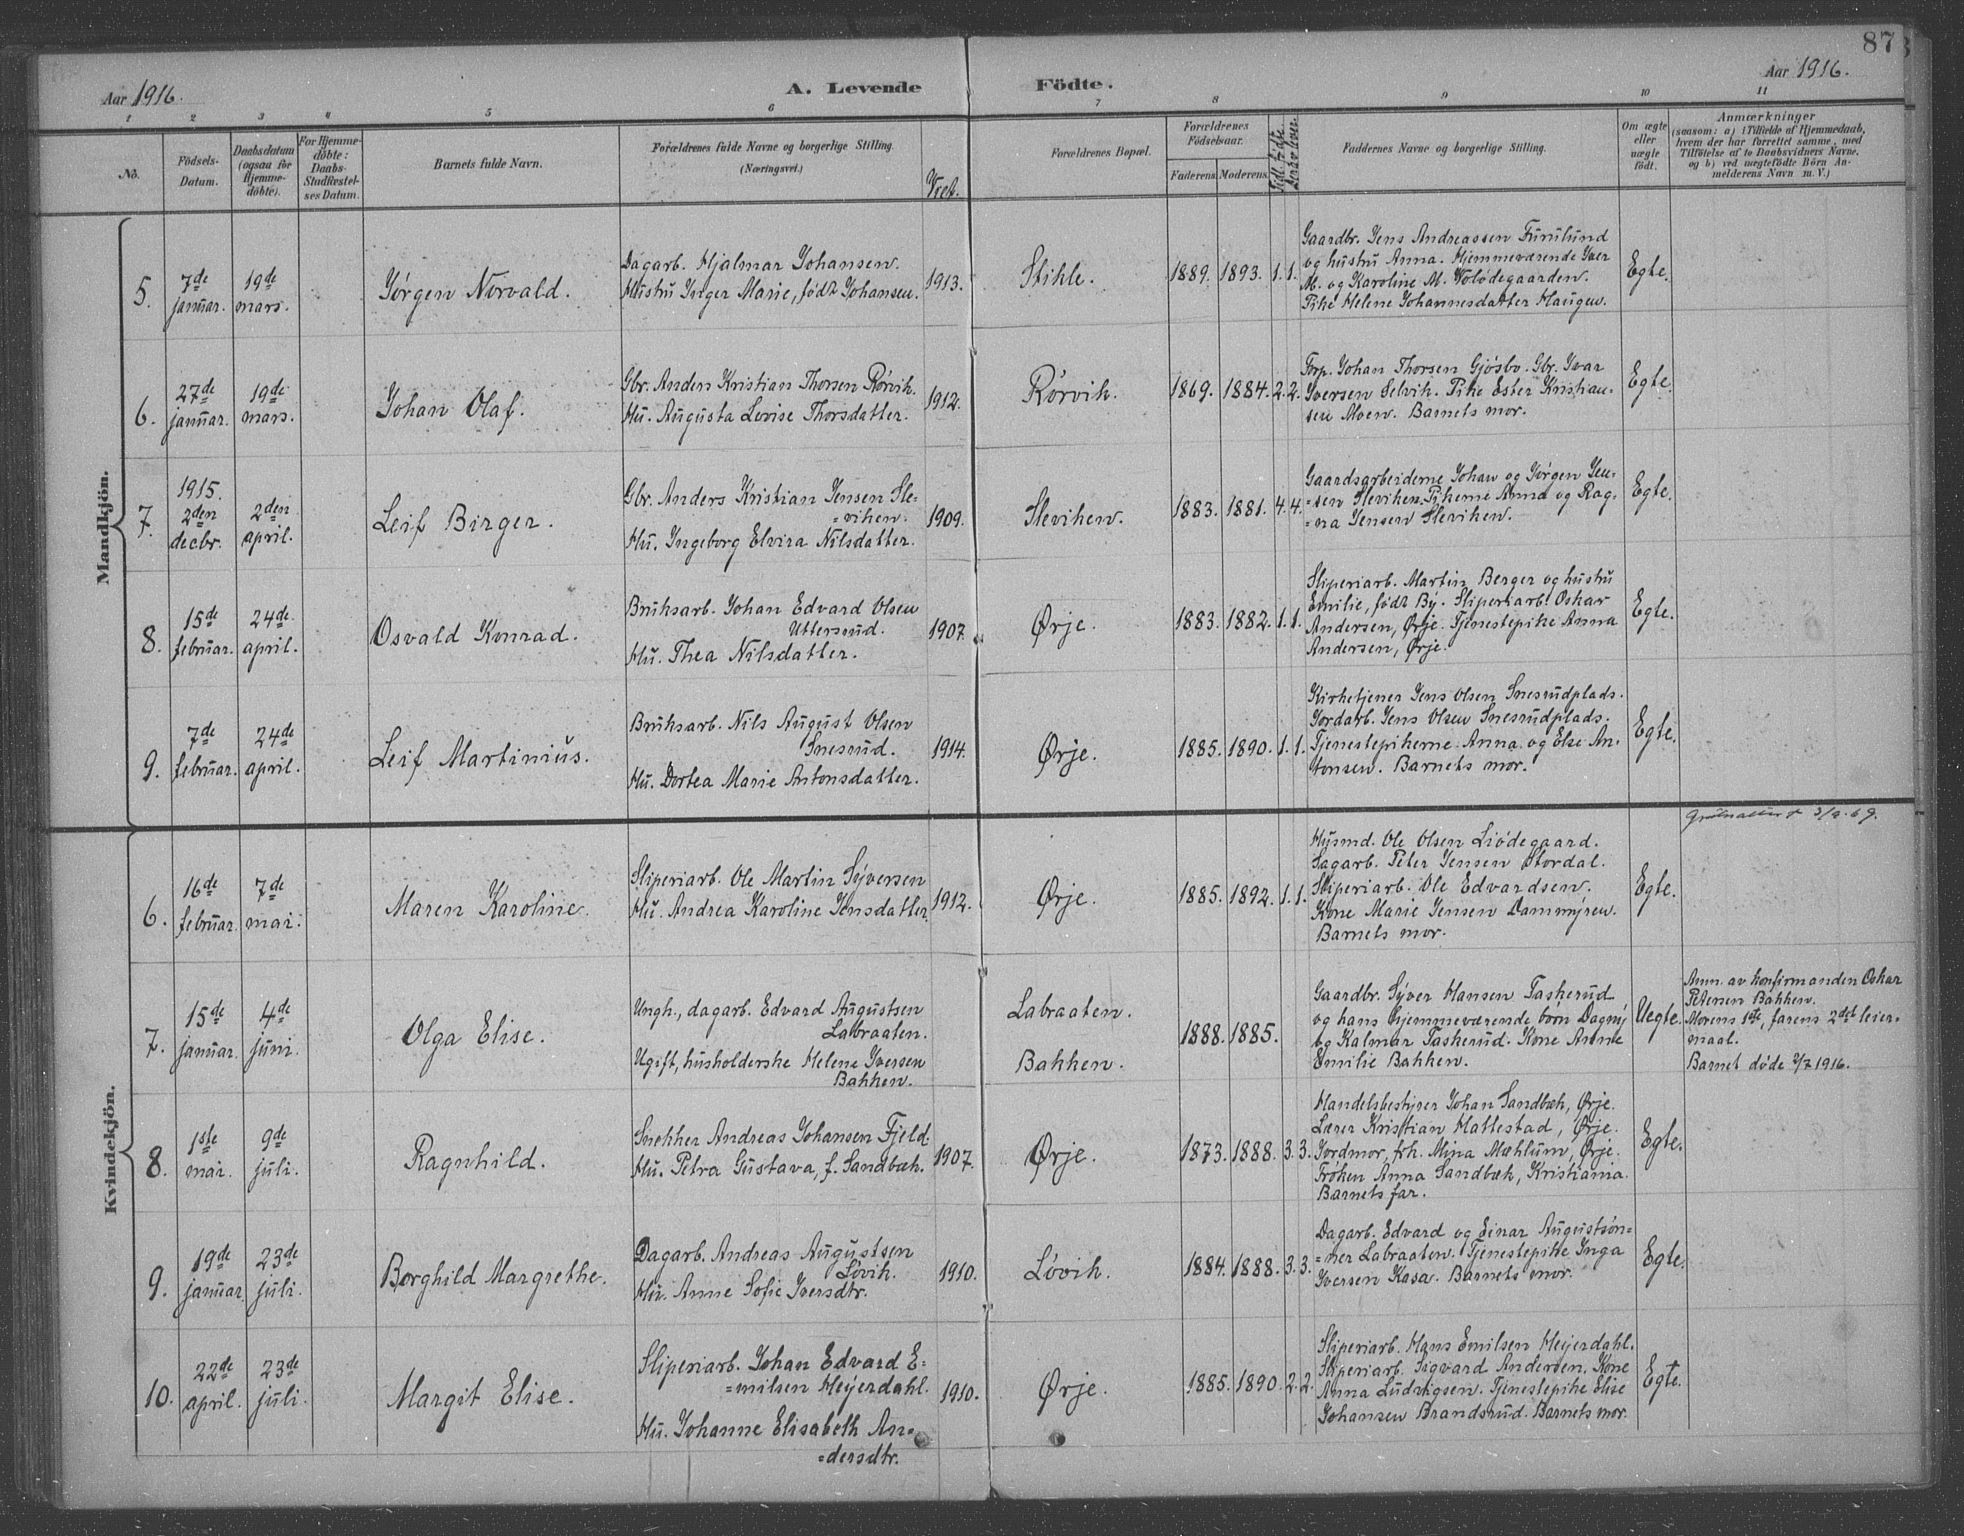 87
Aar 1916.
A. Levende
Födte.
Aar 1916.
1 2 3 4 5 6 7 8 9 10 11
No.
Födsels-
Datum.
Daabsdatum
(ogsaa for
Hjemme-
döbte).
For Hjemme-
döbte:
Daabs-
Stadfæstel-
ses Datum.
Barnets fulde Navn.
Forældrenes fulde Navne og borgerlige Stilling.
(Næringsvei.)
Viet.
Forældrenes Bopæl.
Forældrenes
Födselsaar.
Faderens. Moderens.
Faddernes Navne og borgerlige Stilling.
Om ægte
eller
uægte
födt.
Anmærkninger
(saasom: a) i Tilfælde af Hjemmedaab,
hvem der har forrettet samme, med
Tilföielse af to Daabsvidners Navne,
og b) ved uægtefödte Börn An-
melderens Navn m. V.)
Mandkjön.
5.
7de
januar.
19de
mars.
Jørgen Norvald.
Dagarb. Hjalmar Johansen.
Hustru Inger Marie, født Johansen.
1913.
Stikle.
1889. 1893. 1. 1.
Gaardbr. Jens Andreassen Furulund
og hustru Anna. Hjemmeværende Iver
M. og Karoline M. Volødegaarden.
Pike Helene Johannesdatter Haugen.
Egte.
6.
27de
januar.
19de
mars.
Johan Olaf.
Gbr. Anden Kristian Thorsen Rørvik.
Hu. Augusta Lovise Thorsdatter.
1912.
Rørvik.
1869. 1884. 2. 2.
Forp. Johan Thorsen Gjøsbo. Gbr. Ivar
Iversen Selvik. Pike Ester Kristian-
sen Moen. Barnets mor.
Egte.
7.
1915.
2den
decbr.
2den
april.
Leif Birger.
Gbr. Anders Kristian Jensen Sle-
=viken.
Hu. Ingeborg Elvira Nilsdatter.
1909.
Sleviken.
1883. 1881. 4. 4.
Gaardsarbeiderne Johan og Jørgen Jen-
=sen Sleviken. Pikerne Anna og Rag-
=na Jensen Sleviken.
Egte.
8.
15de
februar.
24de
april.
Osvald Konrad.
Bruksarb. Johan Edvard Olsen
Uttersrud.
Hu. Thea Nilsdatter.
1907.
Ørje.
1883. 1882. 1. 1.
Sliperiarb. Martin Berger og hustru
Emilie, født By. Sliperiarb. Oskar
Andersen, Ørje. Tjenestepike Anna
Andersen, Ørje.
Egte.
9.
7de
februar.
24de
april.
Leif Martinius.
Bruksarb. Nils August Olsen
Snesrud.
Hu. Dortea Marie Antonsdatter.
1914.
Ørje.
1885. 1890. 1. 1.
Kirketjener Jens Olsen Snesrudplads.
Jordarb. Jens Olsen Snesrudplads.
Tjenestepikerne Anna og Else An-
tonsen. Barnets mor.
Egte.
Kvindekjön.
6.
16de
februar.
7de
mai.
Maren Karoline.
Sliperiarb. Ole Martin Syversen
Hu. Andrea Karoline Jensdatter.
1912.
Ørje.
1885. 1892. 1. 1.
Husmd. Ole Olsen Liødegaard.
Sagarb. Peter Jensen Stordal.
Sliperiarb. Ole Edvardsen.
Kone Marie Jensen Dammyren.
Barnets mor.
Egte.
7.
15de
januar.
4de
juni.
Olga Elise.
Ungk., dagarb. Edvard Augustsen
Labraaten.
Ugift, husholderske Helene Iversen
Bakken.
Labraaten.
Bakken.
1888. 1885.
Gaardbr. Syver Hansen Taskerud
og hans hjemmeværende børn Dagny
og Kalmar Taskerud. Kone Anne
Emilie Bakken.
Uegte.
Anm. av konfirmanden Oskar
Petersen Bakken.
Morens 1ste, farens 2det leier-
maal.
Barnet døde 2/7 1916.
8.
1ste
mar.
9de
juli.
Ragnhild.
Snekker Andreas Johansen Fjeld
Hu. Petra Gustava, f. Sandbæk.
1907.
Ørje.
1873. 1888. 3. 3.
Handelsbestyrer Johan Sandbæk, Ørje.
Lærer Kristian Hattestad, Ørje.
Jordmor, frk. Mina Mæhlum, Ørje.
Frøken Anna Sandbæk, Kristiania.
Barnets far.
Egte.
9.
19de
januar.
23de
juli.
Borghild Margrethe.
Dagarb. Andreas Augustsen
Løvik.
Hu. Anne Sofie Iversdtr.
1910.
Løvik.
1884. 1888. 3. 3.
Dagarb. Edvard og Einar Augustsøn-
=ner Labraaten. Tjenestepike Inga
Iversen Kasa. Barnets mor.
Egte.
10.
22de
april.
23de
juli.
Margit Elise.
Sliperiarb. Johan Edvard E=
=milsen Heyerdahl.
Hu. Johanne Elisabeth An=
=dersdtr.
1910.
Ørje.
1885. 1890. 2. 2.
Sliperiarb. Hans Emilsen Heyerdahl.
Sliperiarb. Sigvard Andersen. Kone
Anna Ludvigsen. Tjenestepike Elise
Johansen Brandsrud. Barnets mor.
Egte.